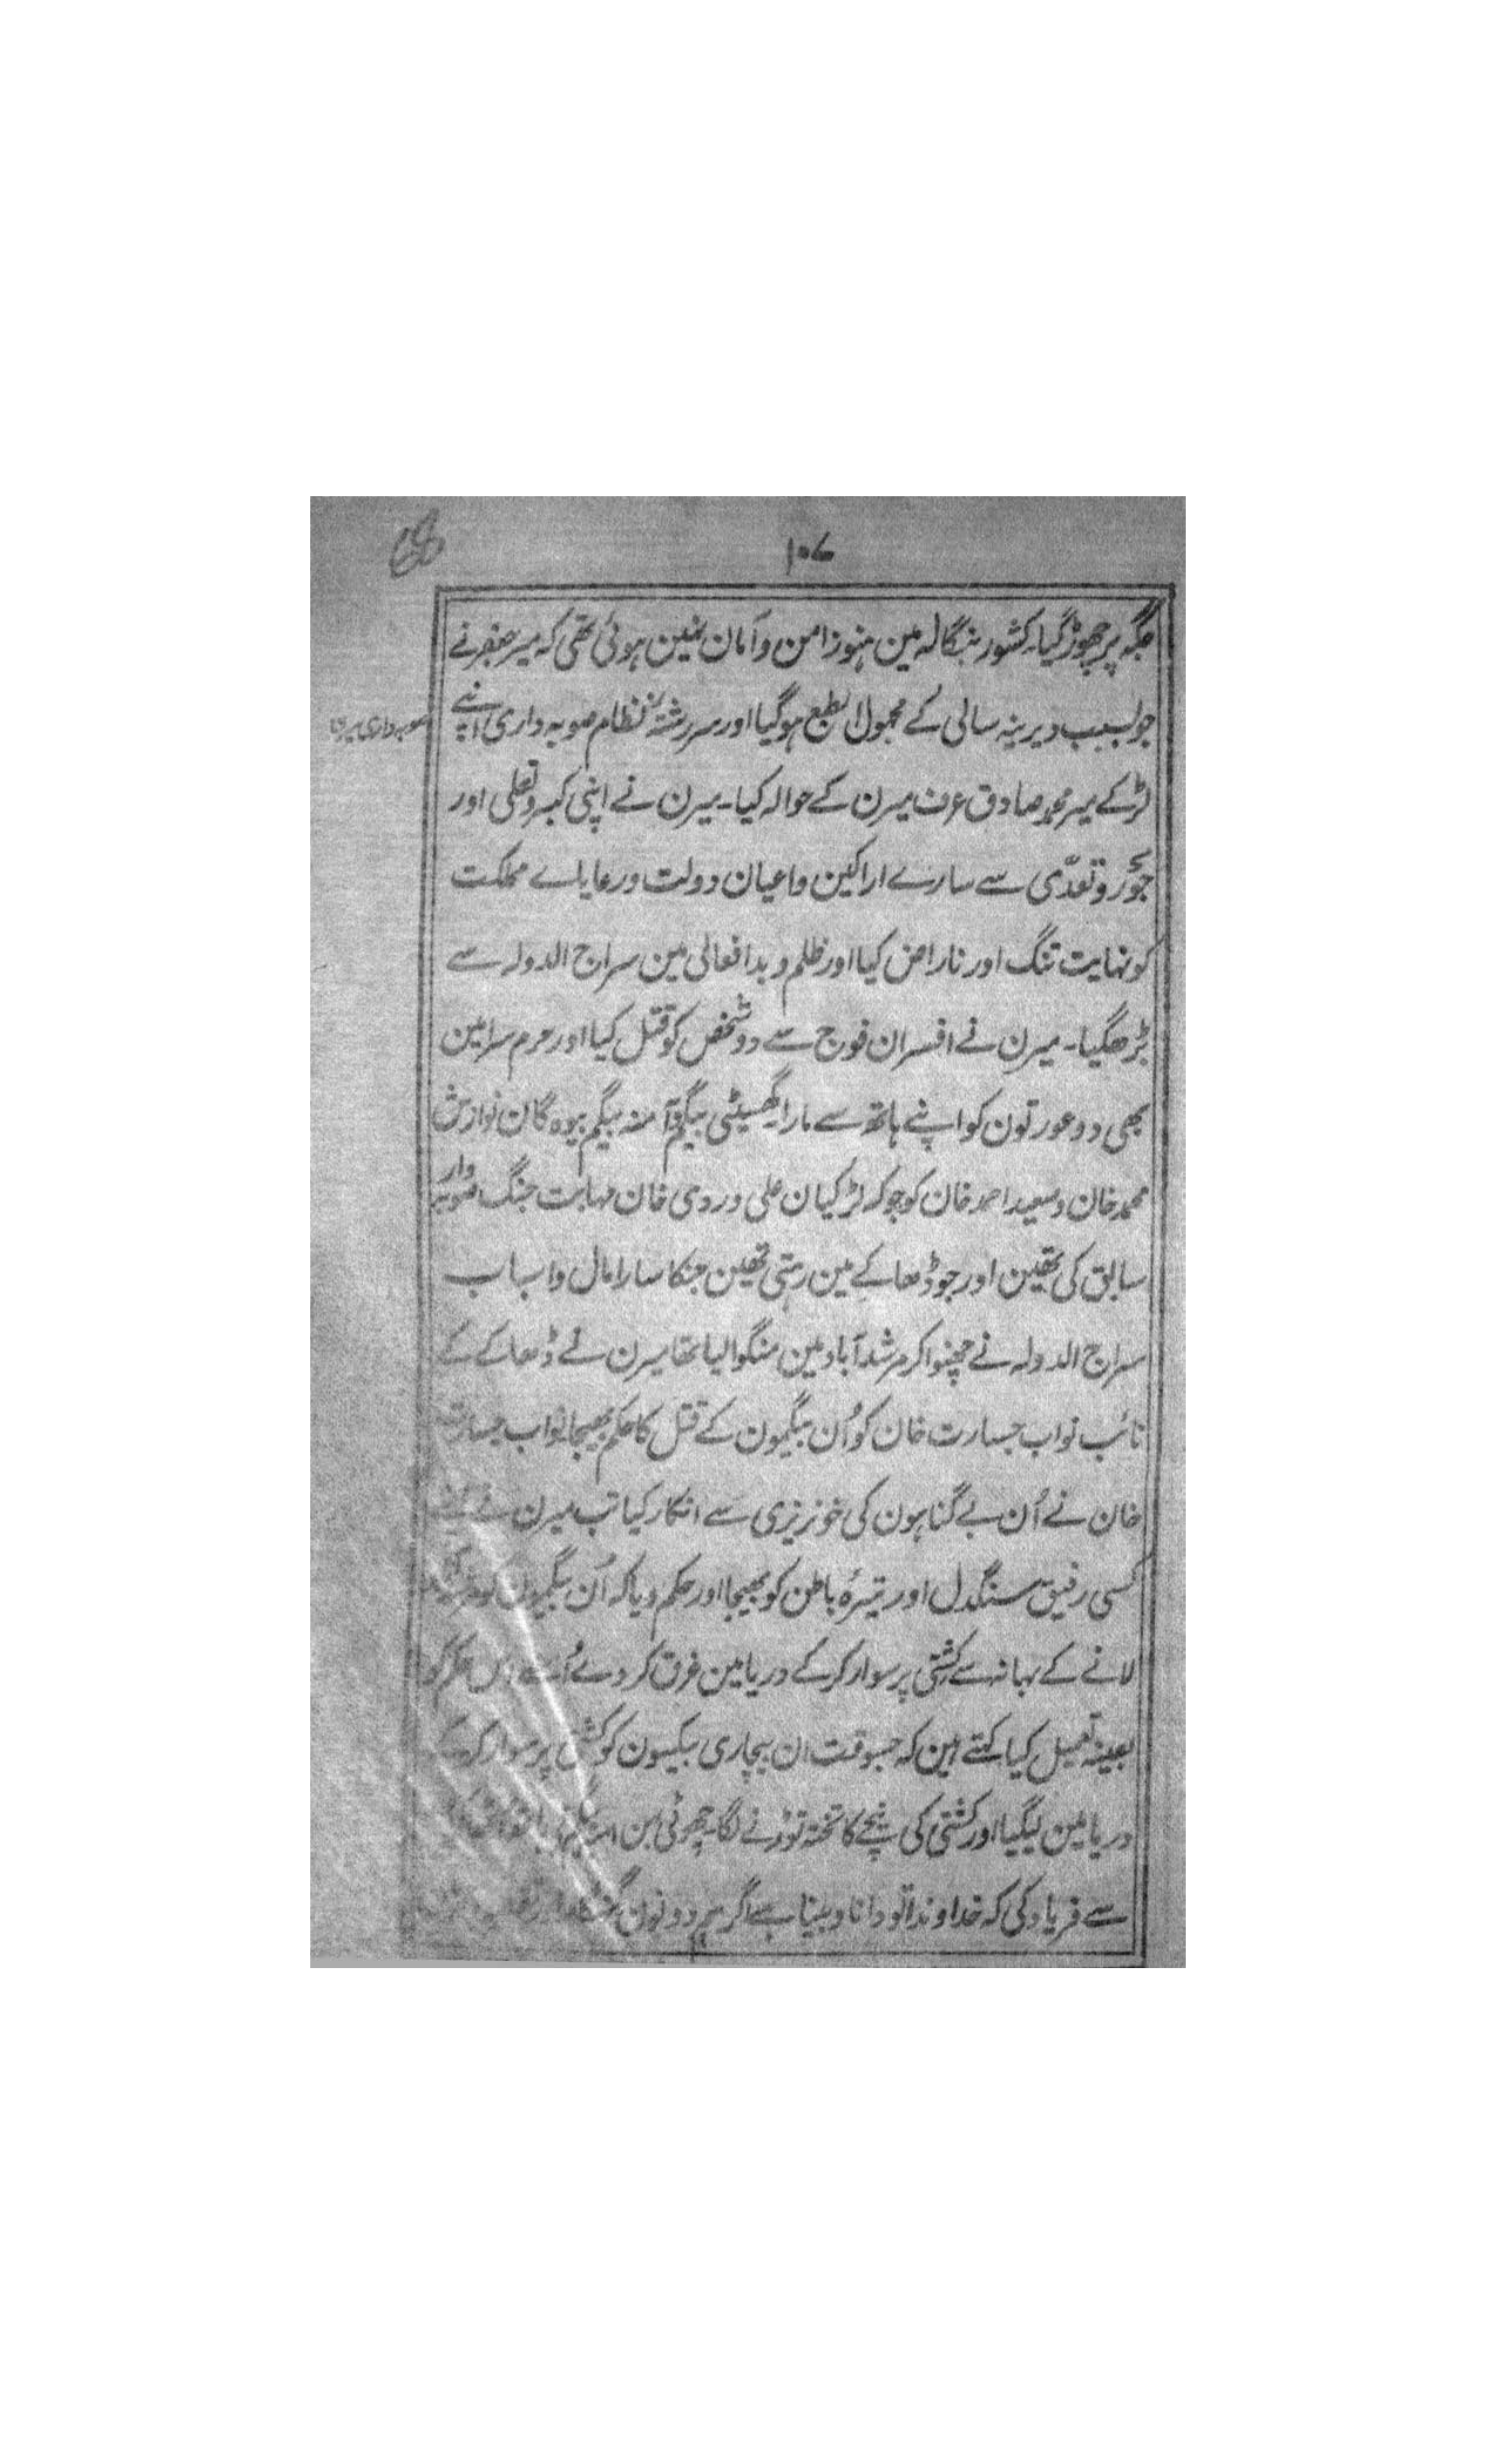 ۱۰۷
68
جگہ پر چھوڑ گیا۔ کشور بنگالہ مین ہنوز امن و امان نہین ہوئی تھی کہ میر جعفر نے
جو بسبب دیرینہ سالی کے مجہول الطبع ہو گیا اور سررشتۂ نظام صوبہ داری اپنے
لڑکے میر محمد صادق عرف میرن کے حوالہ کیا۔ میرن نے اپنی کبر و تعلی اور
جَور و تعدّی سے سارے اراکین و اعیان دولت ورعایاے مملکت
کو نہایت تنگ اور ناراض کیا اور ظلم و بد افعالی مین سراج الدولہ سے
بڑھگیا۔ میرن نے افسران فوج سے دو شخص کو قتل کیا اور حرم سرا مین
بھی دو عورتون کو اپنے ہاتھ سے مارا۔ گھسیٹی بیگم و آمنہ بیگم بیوہ گان نوازش
محمد خان و سعید احمد خان کو جو کہ لڑکیان علی وردی خان مہابت جنگ صوبہ دار
سابق کی تھین اور جو ڈھاکے مین رہتی تھین جنکا سارا مال و اسباب
سراج الدولہ نے چھنوا کر مرشد آباد مین منگوا لیا تھا میرن نے ڈھاکے کے
نائب نواب جسارت خان کو اُن بیگمون کے قتل کا حکم بھیجا نواب جسارت
خان نے اُن بے گناہون کی خونریزی سے انکار کیا تب میرن نے
کسی رفیق سنگدل اور تیرہ باطن کو بھیجا اور حکم دیا کہ اُن بیگمون کو
لانے کے بہانہ سے کشتی پر سوار کر کے دریا مین غرق کر دے اُسنے اس حکم کو
بعینہ تعمیل کیا کہتے ہین کہ جسوقت ان بیچاری بیکسون کو کشتی پر سوار کر کے
دریا مین لیگیا اور کشتی کی نیچے کا تختہ توڑنے لگا۔ چھوٹی بہن
سے فریاد کی کہ خداوندا تو دانا و بینا ہے اگر ہم دونون